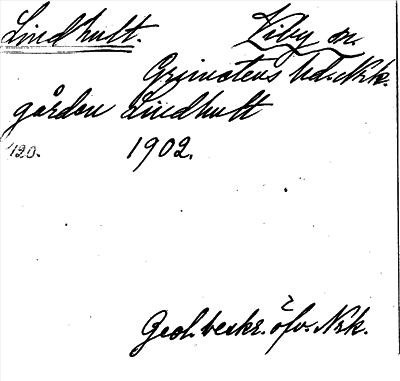 Lindhult. Viby sn.
Grimstens hd. Nrk.
gården Lindhult
120. 1902.
Geol. beskr. öfv. Nrk.